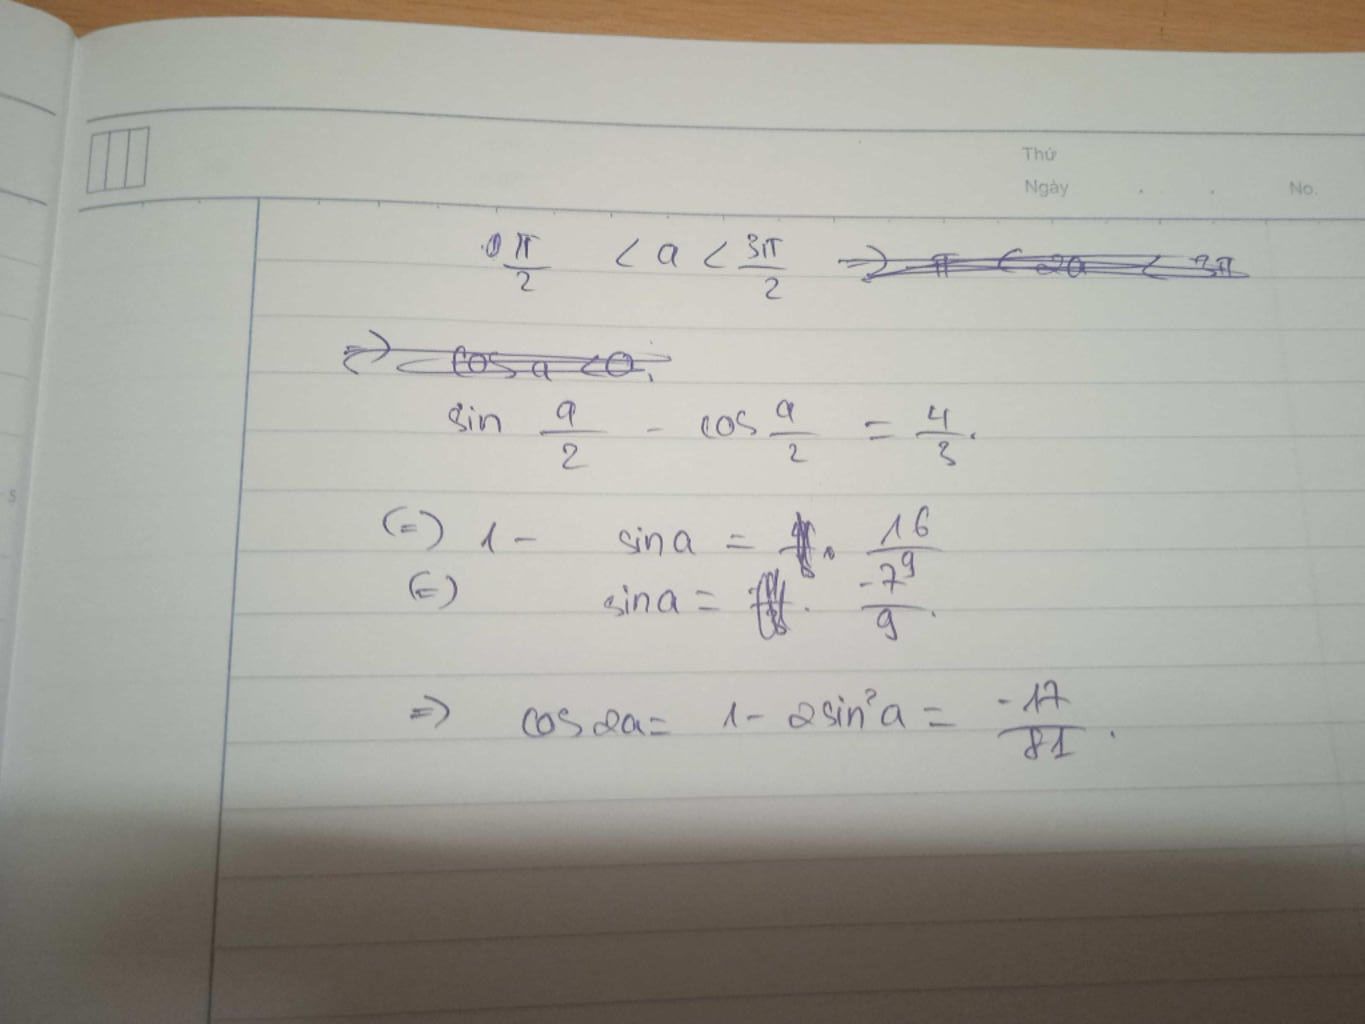 Thứ
Ngày . . No.
π/2 < a < 3π/2 => π < 2a < 3π
=> cos a < 0.
sin a/2 - cos a/2 = 4/3.
(=) 1 - sin a = 16/9
(=) sin a = -7/9.
=> cos 2a = 1 - 2sin²a = -17/81.
5